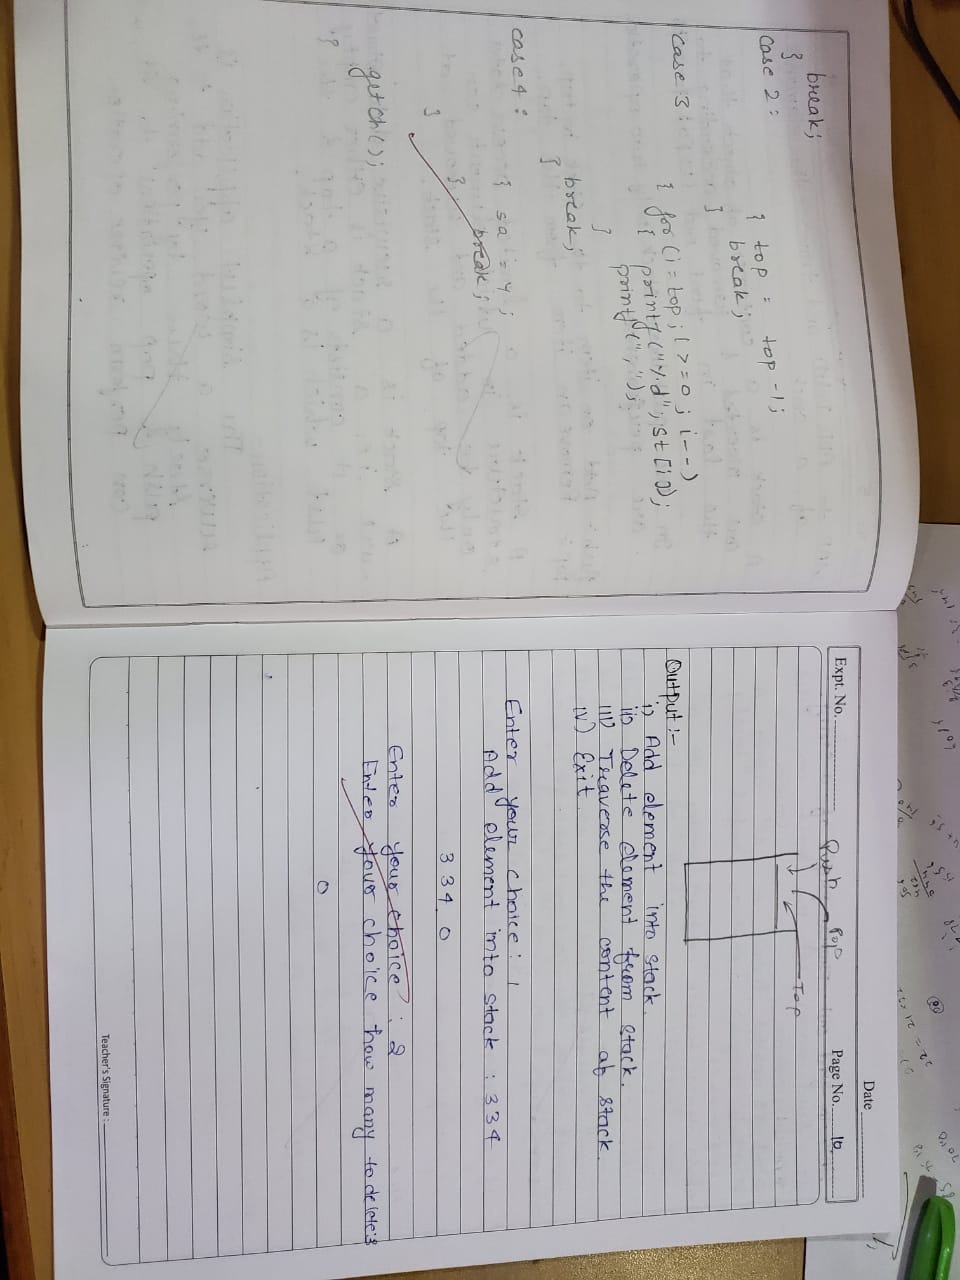 break;
}
case 2:
{ top = top -1;
break;
}
case 3:
{ for (i=top; i>=0; i--)
{ printf("%d", st[i]);
printf(",");
}
break;
}
case 4:
{ sa = 4;
break;
}
}
getch();
}
Date
Expt. No.
Page No. 10
Push
Pop
Top
Output:-
i) Add element into stack.
ii) Delete element from stack.
iii) Traverse the content of stack.
iv) Exit
Enter your choice: 1
Add element into stack: 334
334.0
Enter your choice: 2
Enter your choice how many to delete:3
0
Teacher's Signature: